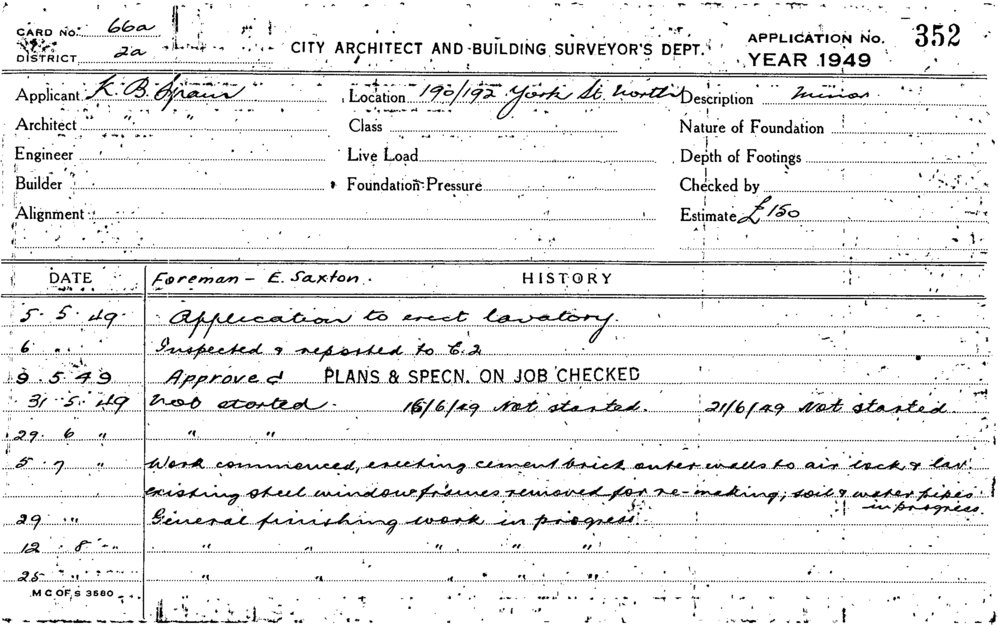 CARD No. 66a
DISTRICT 2a
CITY ARCHITECT AND BUILDING SURVEYOR'S DEPT.
APPLICATION No. 352
YEAR 1949
Applicant K. B. Spain Location 190/192 York St. North Description Minor
Architect " " " Class Nature of Foundation
Engineer Live Load Depth of Footings
Builder Foundation Pressure Checked by
Alignment Estimate £150
DATE Foreman - E. Saxton. HISTORY
5. 5. 49 Application to erect lavatory.
6 " Inspected & reported to E.2
9. 5. 49 Approved PLANS & SPECN. ON JOB CHECKED
31. 5. 49 Not started. 16/6/49 Not started. 21/6/49 Not started.
29. 6 " " "
5. 7 " Work commenced, erecting cement brick outer walls to air lock & lav.
existing steel window frames removed for re-making, soil & water pipes
in progress.
29 " " General finishing work in progress.
12 8 " " " " " "
25 " " " " " " " "
M C OF S 3580